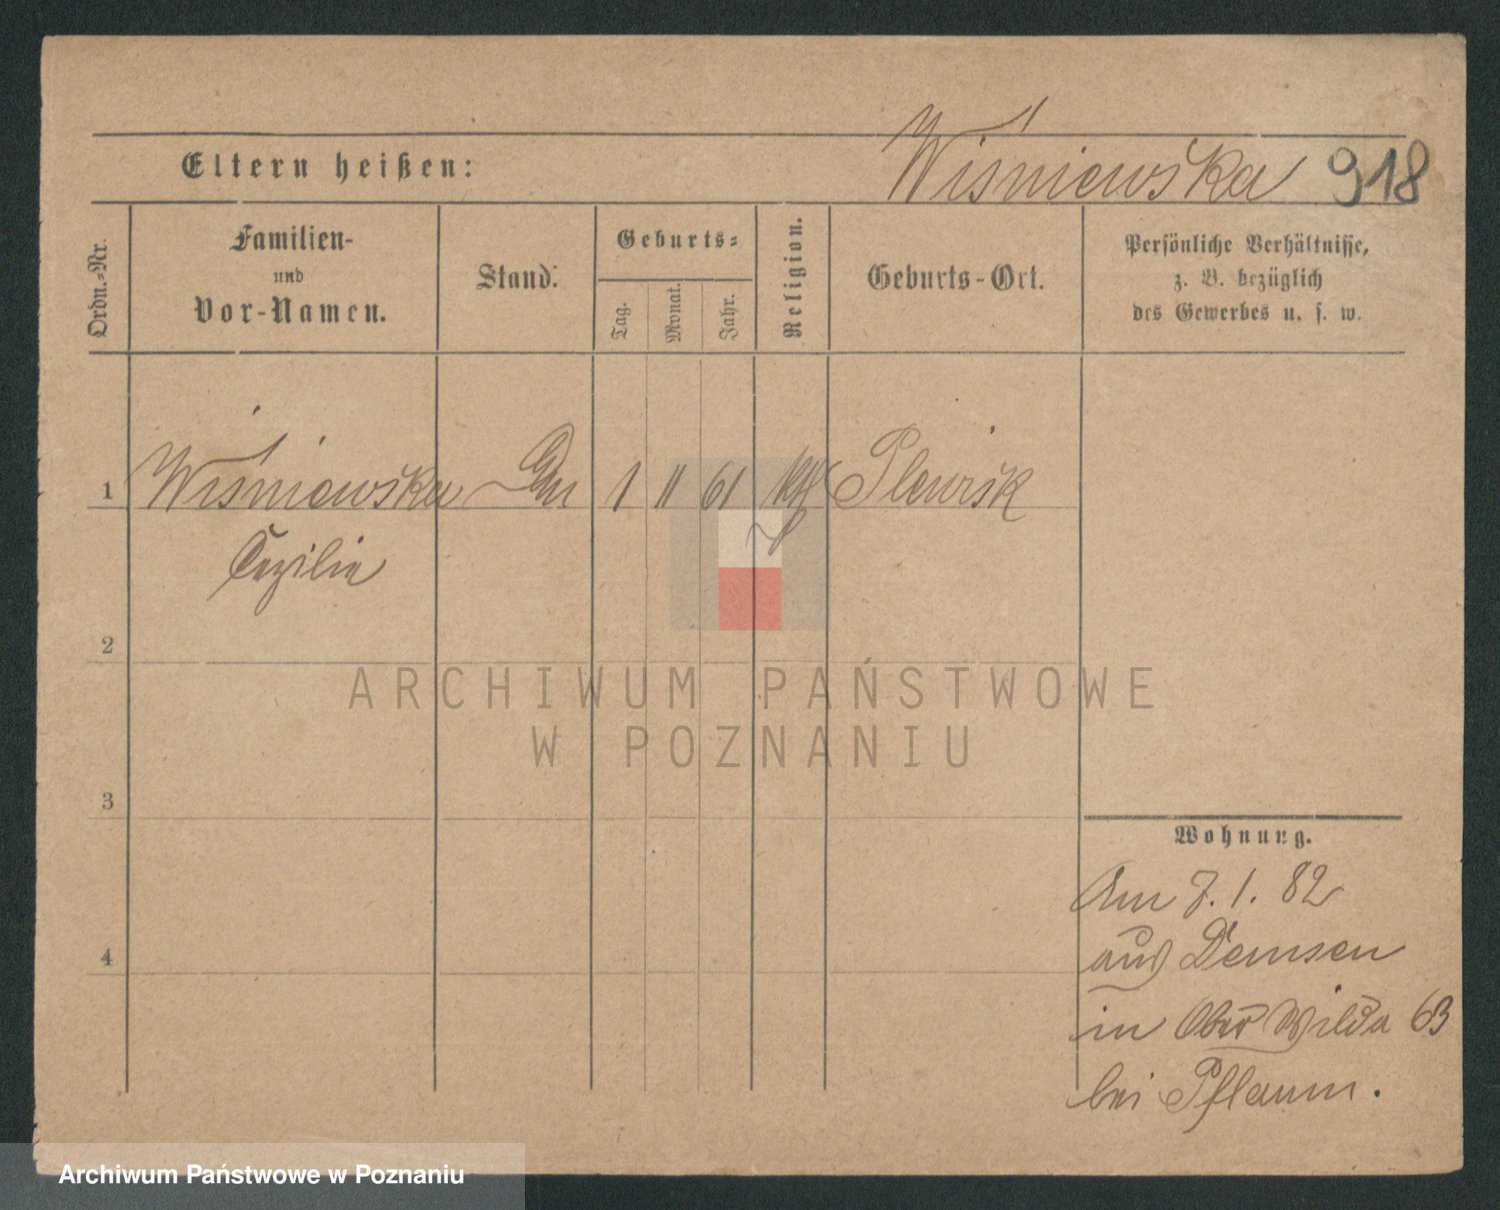 Wiśniewska 918
Eltern heißen:
Ordn.-Nr.
Familien-
und
Vor-Namen.
Stand.
Geburts-
Tag.
Monat.
Jahr.
Religion.
Geburts-Ort.
Persönliche Verhältnisse,
z. B. bezüglich
des Gewerbes u. s. w.
1 Wiśniewska 1 11 61 Plewisk
Cezilie
2
3
4
Wohnung.
Am 7. 1. 82
aus Demsen
in Ober Wilda 63
bei Pflaum.
ARCHIWUM PAŃSTWOWE
W POZNANIU
Archiwum Państwowe w Poznaniu